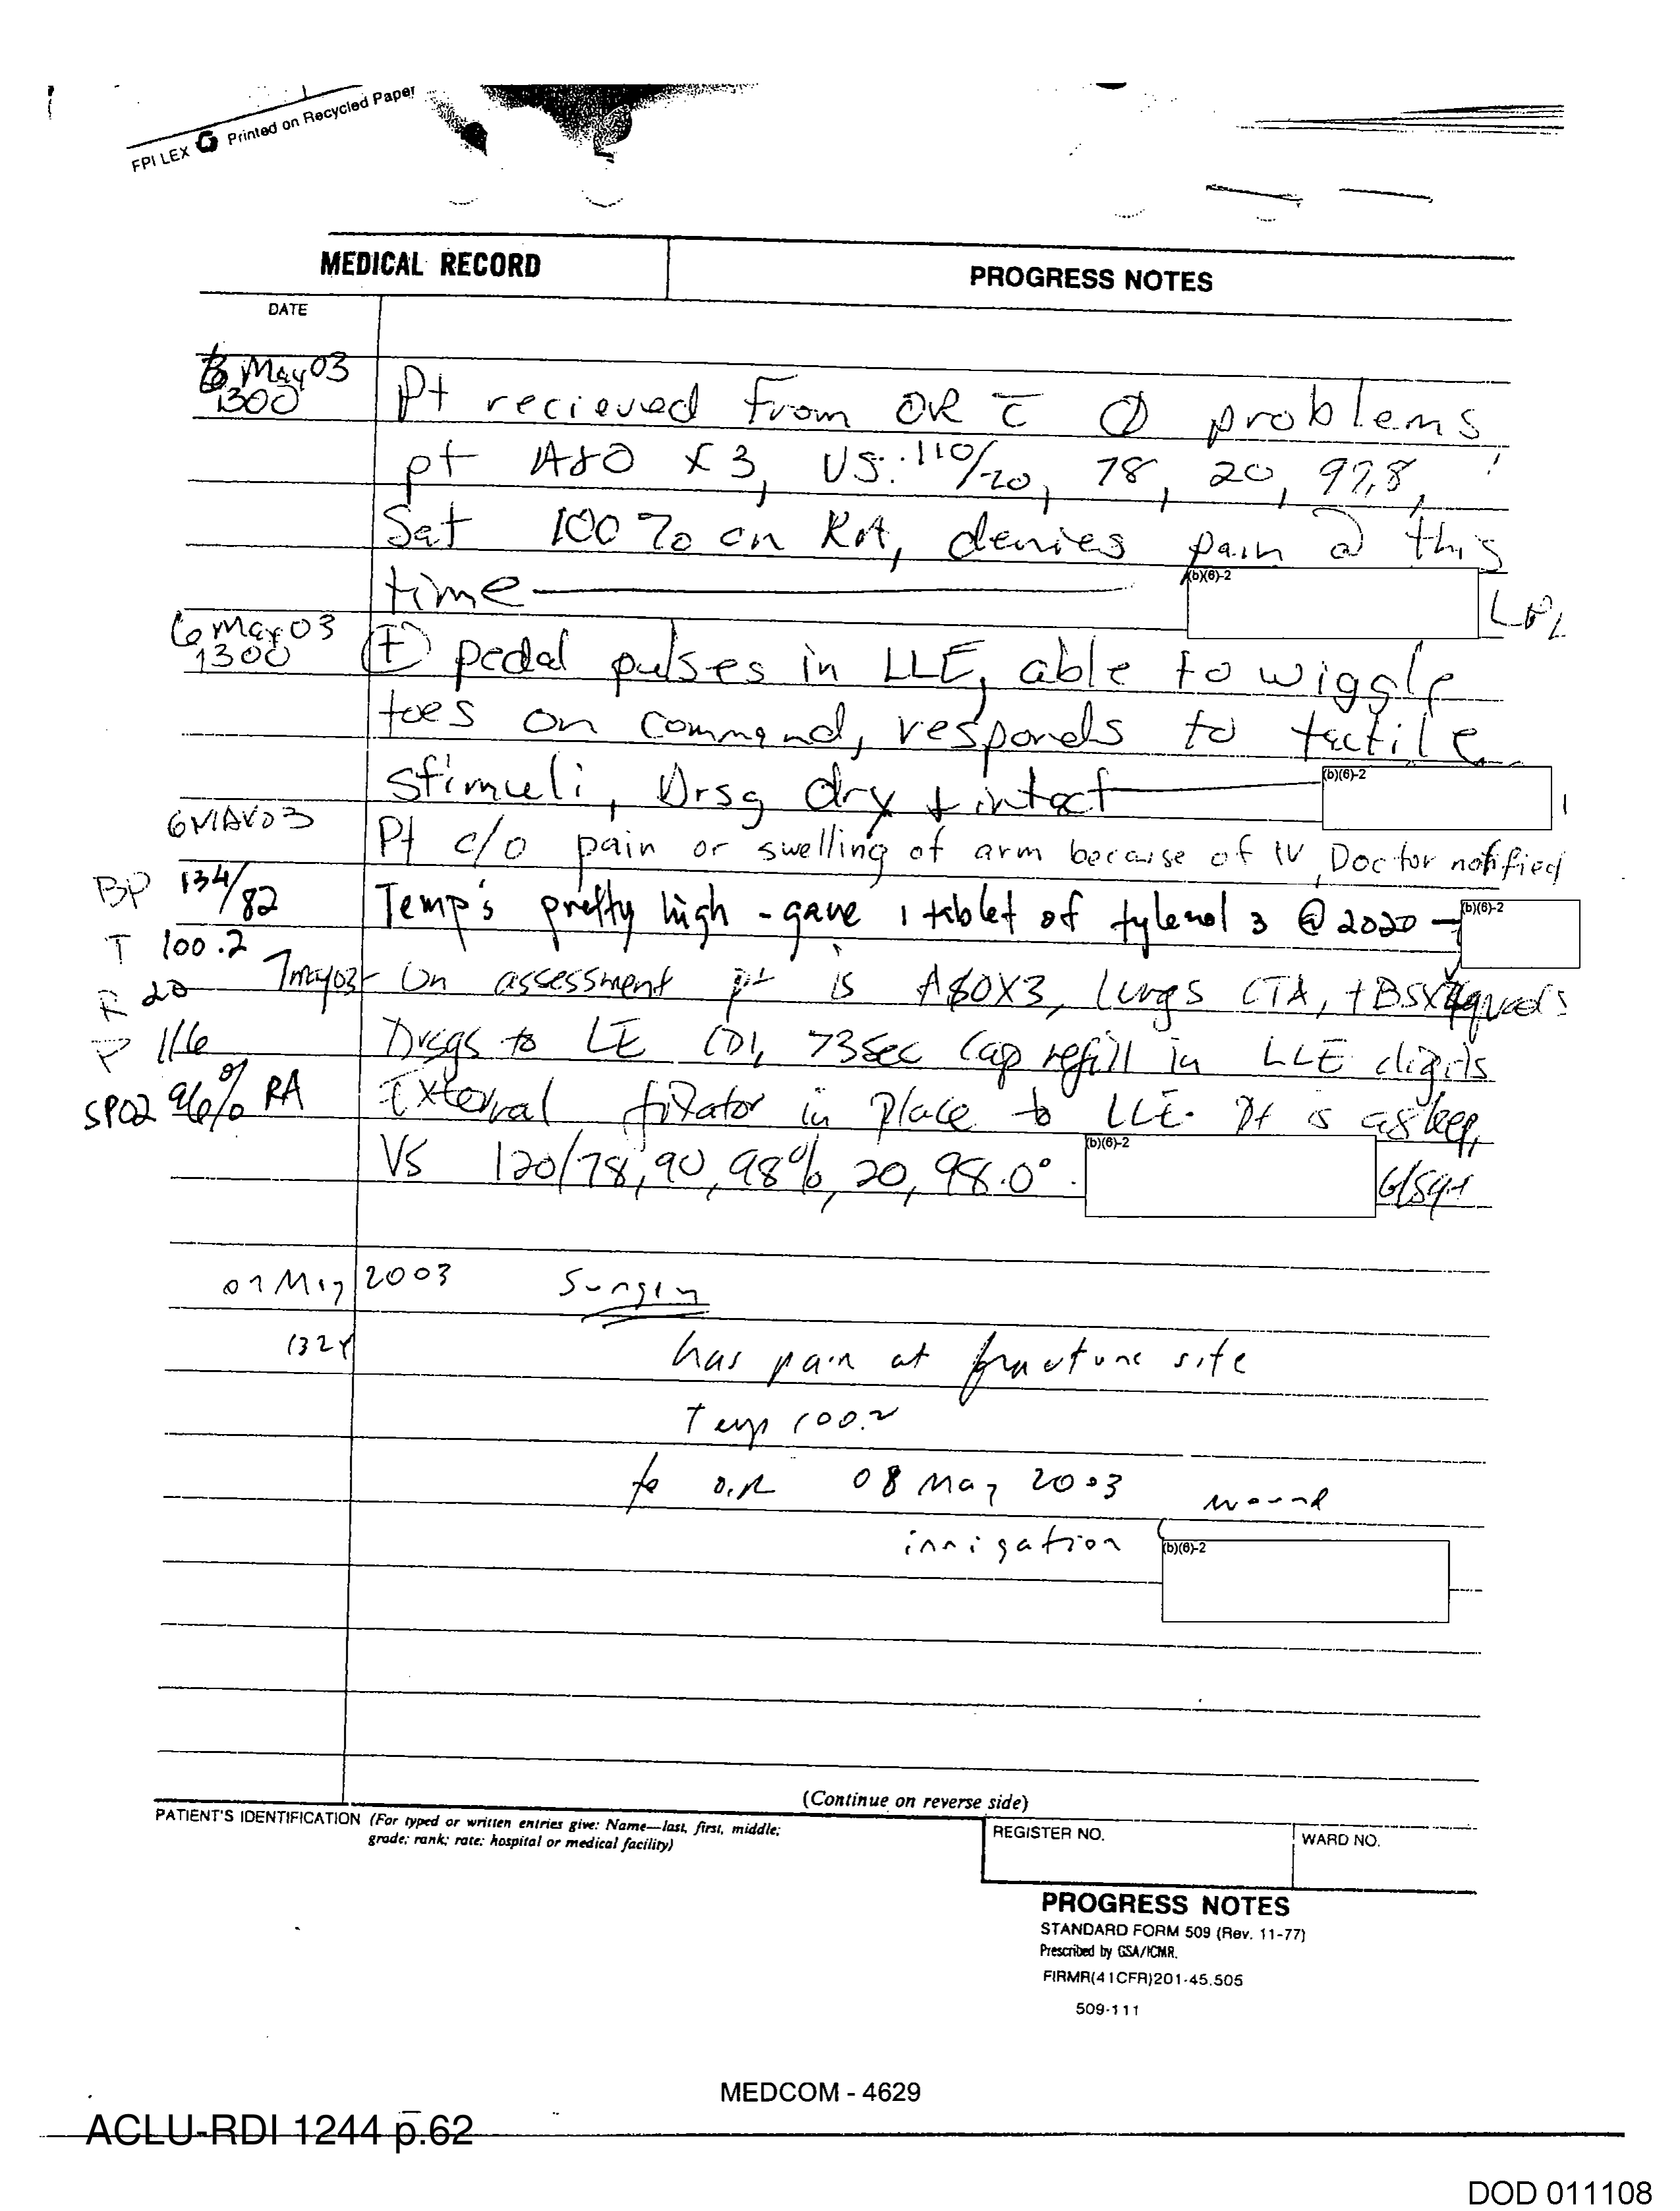 FPI LEX Printed on Recycled Paper
MEDICAL RECORD
PROGRESS NOTES
DATE
6 May 03
1300
Pt recieved from OR c̄ ∅ problems
pt A&O x 3, VS: 110/70, 78, 20, 97.8,
Sat 100% on RA, denies pain @ this
time
(b)(6)-2
6 May 03
1300
(+) pedal pulses in LLE, able to wiggle
toes on command, responds to tactile
stimuli, Drsg dry + intact
(b)(6)-2
6 MAY 03
Pt c/o pain or swelling of arm because of IV, Doctor notified
BP 134/82
Temp's pretty high - gave 1 tablet of tylenol 3 @ 2020
(b)(6)-2
T 100.2
7 may 03 On assessment pt is A&OX3, lungs CTA, +BSX4quads
R 20
Drsgs to LE CDI, >3sec cap refill in LLE digits
P 116
SPO2 96% RA
External fixator in place to LLE. Pt is asleep,
VS 120/78, 90, 98%, 20, 98.0°.
(b)(6)-2
07 May 2003 Surgery
1324
has pain at fracture site
Temp 100.2
to O.R 08 May 2003 wound
irrigation
(b)(6)-2
(Continue on reverse side)
PATIENT'S IDENTIFICATION (For typed or written entries give: Name—last, first, middle;
grade; rank; rate; hospital or medical facility)
REGISTER NO.
WARD NO.
PROGRESS NOTES
STANDARD FORM 509 (Rev. 11-77)
Prescribed by GSA/ICMR,
FIRMR(41CFR)201-45.505
509-111
MEDCOM - 4629
ACLU-RDI 1244 p.62
DOD 011108